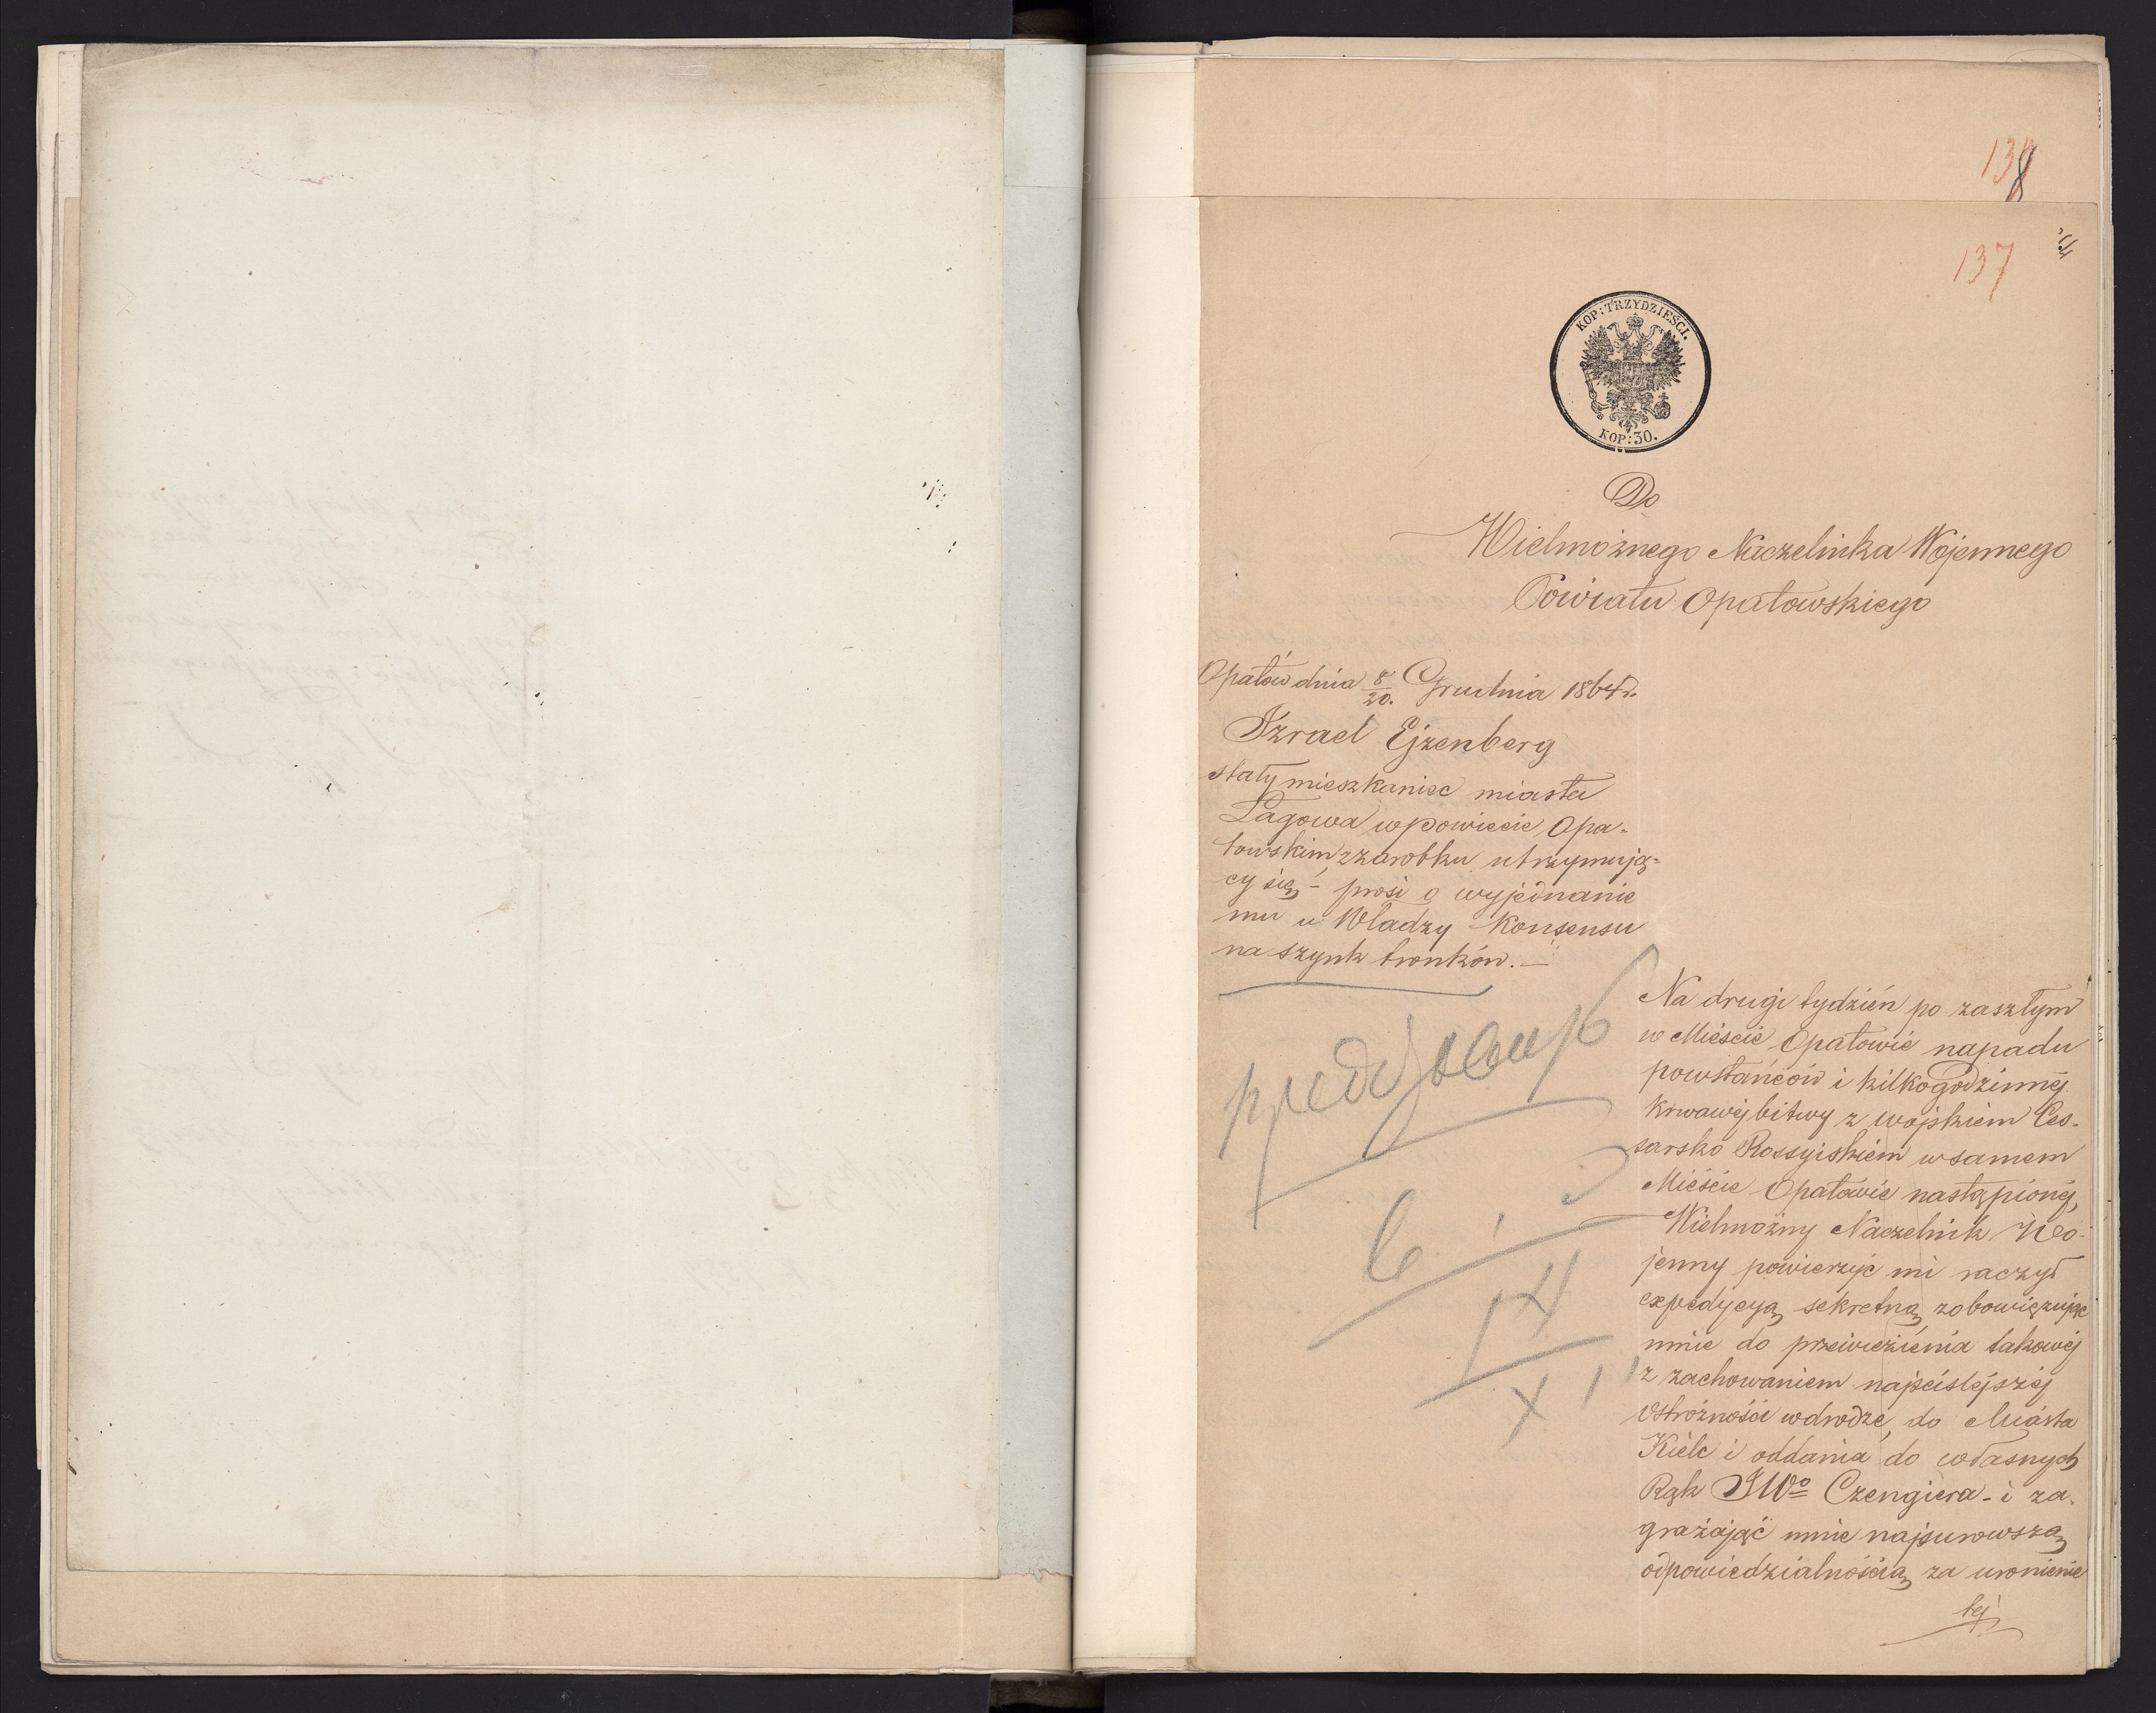 138
137
KOP: TRZYDZIEŚCI.
KOP: 30.
Do
Wielmożnego Naczelnika Wojennego
Powiatu Opatowskiego
Opatów dnia 8/20. Grudnia 1864 r.
Izrael Ejzenberg
stały mieszkaniec miasta
Łagowa w powiecie Opa-
towskim z zarobku utrzymują=
cy się, – prosi o wyjednanie
mu u Władzy Konsensu
na szynk trunków. –
Na drugi tydzień po zaszłym
w Mieście Opatowie napadu
powstańców i kilkogodzinnéj
krwawéj bitwy z wojskiem Ces-
sarsko Rossyiskiem w samem
Mieście Opatowie nastąpionéj,
Wielmożny Naczelnik Wo-
jenny powierzyć mi raczył
expedycyą sekretną, zobowiązując
mnie do przewiezienia takowéj
z zachowaniem najściśléjszéj
Ostrożności w drodze, do Miasta
Kielc i oddania do własnych
Rąk JWo Czengiera – i za-
grażając mnie najsurowszą
odpowiedzialnością za uronienie
téj